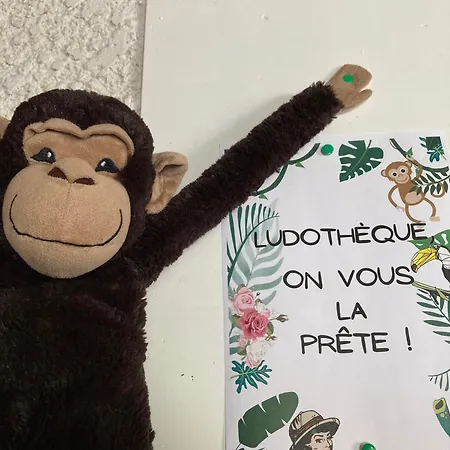 LUDOTHÈQUE,
ON VOUS
LA
PRÊTE !